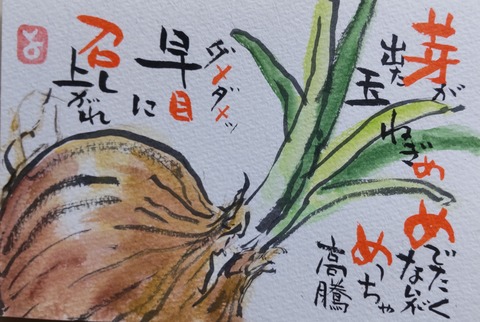 芽が
出た玉
ねぎめ
めでたく
ないぞ
めっちゃ
高騰
ダメダメッ
早目に
召し
上がれ